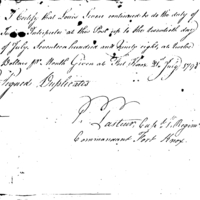 I Certify that Louis Sivan continued to do the duty of
Interpreter at this Post up to the twentieth day
of July, Seventeen hundred and Ninety eight, at twelve
Dollars pr. Month Given at Fort Knox 21t July 1798
Signed Duplicates
F. Pasteur, Capt. 1. Regim
Commandant Fort Knox.